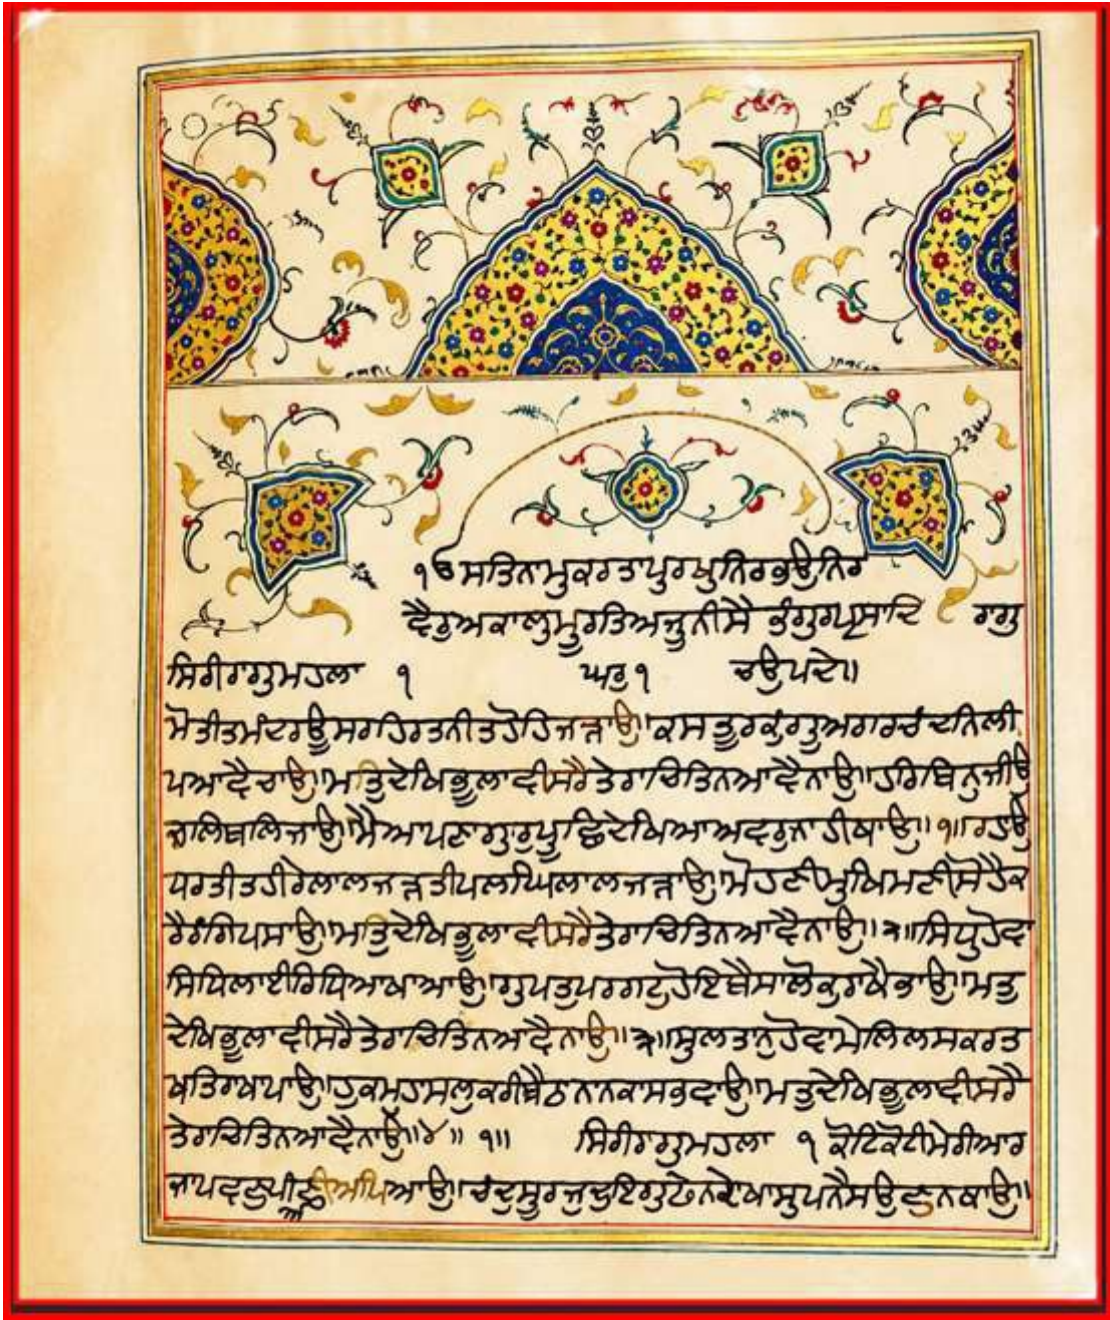 ੧ਓਸਤਿਨਾਮੁਕਰਤਾਪੁਰਖੁਨਿਰਭਉਨਿਰ
ਵੈਰੁਅਕਾਲਮੂਰਤਿਅਜੂਨੀਸੈਭੰਗੁਰਪ੍ਰਸਾਦਿ ਰਾਗੁ
ਸਿਰੀਰਾਗੁਮਹਲਾ ੧ ਘਰੁ੧ ਚਉਪਦੇ॥
ਮੋਤੀਤਮੰਦਰਊਸਰਹਿਰਤਨੀਤਹੋਹਿਜੜਾਉ॥ਕਸਤੂਰਕੁੰਗੂਅਗਰਚੰਦਨਿਲੀ
ਪਆਵੈਚਾਉ॥ਮਤੁਦੇਖਿਭੂਲਾਵੀਸਰੈਤੇਰਾਚਿਤਿਨਆਵੈਨਾਉ॥ਹਰਿਬਿਨੁਜੀਉ
ਜਲਿਬਲਿਜਾਉ॥ਮੈਆਪਣਾਗੁਰੁਪੂਛਿਦੇਖਿਆਅਵਰੁਨਾਹੀਥਾਉ॥੧॥ਰਹਾਉ
ਧਰਤੀਤਹੀਰੇਲਾਲਜੜਤੀਪਲਘਿਲਾਲਜੜਾਉ॥ਮੋਹਣੀਮੁਖਿਮਣੀਸੋਹੈਕ
ਰੈਰੰਗਿਪਸਾਉ॥ਮਤੁਦੇਖਿਭੂਲਾਵੀਸਰੈਤੇਰਾਚਿਤਿਨਆਵੈਨਾਉ॥੨॥ਸਿਧੁਹੋਵਾ
ਸਿਧਿਲਾਈਰਿਧਿਆਖਾਆਉ॥ਗੁਪਤੁਪਰਗਟੁਹੋਇਬੈਸਾਲੋਕੁਰਾਖੈਭਾਉ॥ਮਤੁ
ਦੇਖਿਭੂਲਾਵੀਸਰੈਤੇਰਾਚਿਤਿਨਆਵੈਨਾਉ॥੩॥ਸੁਲਤਾਨੁਹੋਵਾਮੇਲਿਲਸਕਰਤ
ਖਤਿਰਾਖਾਪਾਉ॥ਹੁਕਮੁਹਾਸਲੁਕਰੀਬੈਠਨਾਨਕਾਸਭਵਾਉ॥ਮਤੁਦੇਖਿਭੂਲਾਵੀਸਰੈ
ਤੇਰਾਚਿਤਿਨਆਵੈਨਾਉ॥੪॥੧॥ ਸਿਰੀਰਾਗੁਮਹਲਾ ੧ ਕੋਟਿਕੋਟੀਮੇਰੀਆਰ
ਜਾਪਵਣੁਪੀਅਣੁਅਪਿਆਉ॥ਚੰਦੁਸੂਰਜੁਦੁਇਗੁਫੈਨਦੇਖਾਸੁਪਨੈਸਉਣੁਨਥਾਉ॥